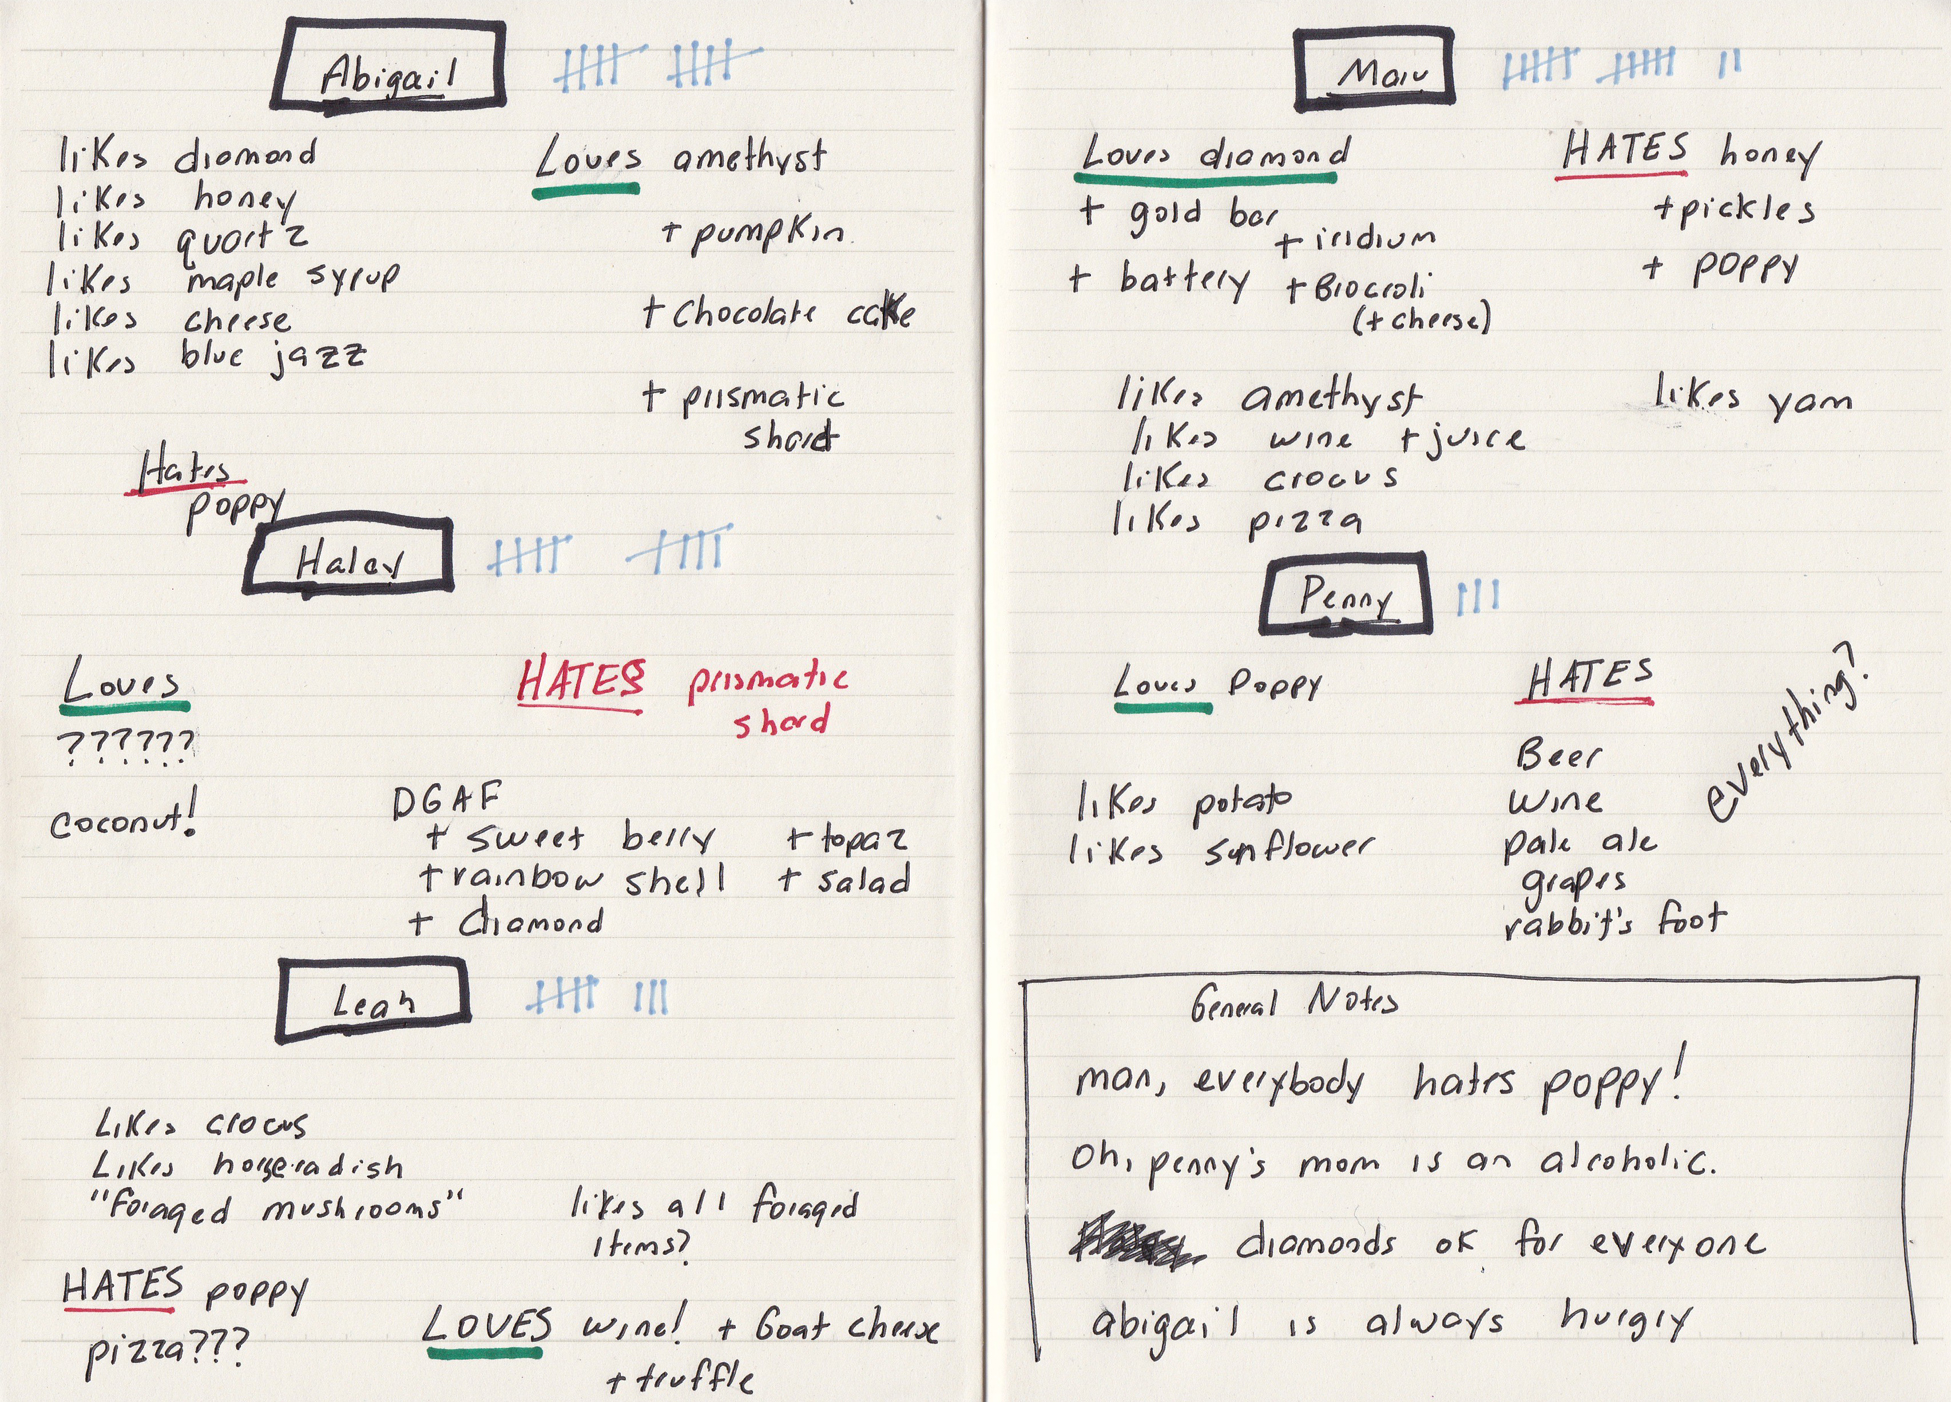 Abigail
likes diamond
likes honey
likes quartz
likes maple syrup
likes cheese
likes blue jazz
Loves amethyst
+ pumpkin
+ chocolate cake
+ prismatic
shard
Hates
poppy
Haley
Loves
??????
coconut!
HATES prismatic
shard
DGAF
+ sweet berry + topaz
+ rainbow shell + salad
+ diamond
Leah
Likes crocus
Likes horseradish
"foraged mushrooms"
likes all foraged
items?
HATES poppy
pizza???
LOVES wine! + Goat cheese
+ truffle
Maru
Loves diamond
+ gold bar
+ iridium
+ battery + Broccoli
(+ cheese)
HATES honey
+ pickles
+ poppy
likes amethyst
likes wine + juice
likes crocus
likes pizza
likes yam
Penny
Loves Poppy
likes potato
likes sunflower
HATES
Beer
wine
pale ale
grapes
rabbit's foot
everything?
General Notes
man, everybody hates poppy!
Oh, penny's mom is an alcoholic.
diamonds ok for everyone
abigail is always hungry